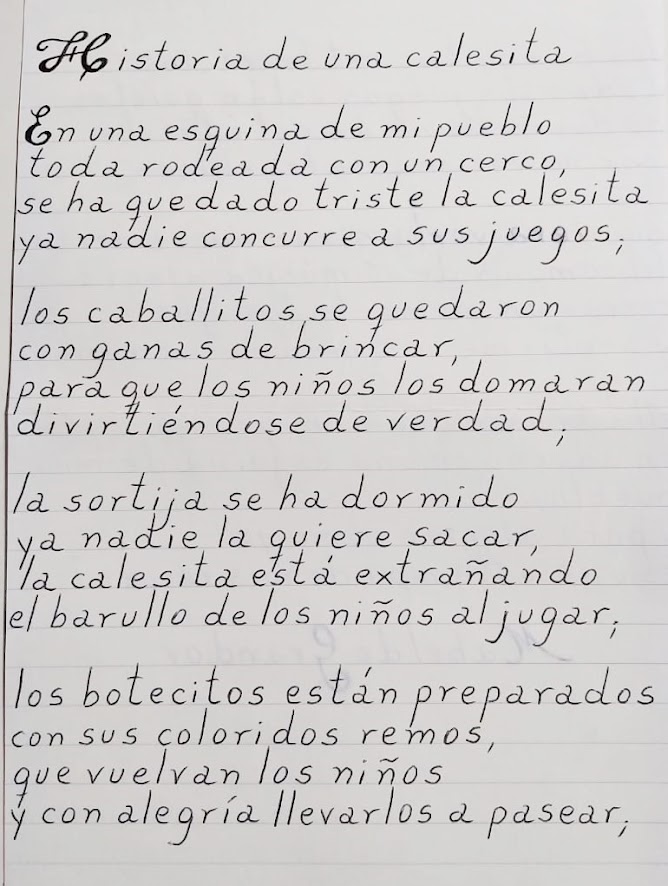 Historia de una calesita
En una esquina de mi pueblo
toda rodeada con un cerco,
se ha quedado triste la calesita
ya nadie concurre a sus juegos;
los caballitos se quedaron
con ganas de brincar,
para que los niños los domaran
divirtiéndose de verdad;
la sortija se ha dormido
ya nadie la quiere sacar,
la calesita está extrañando
el barullo de los niños al jugar;
los botecitos están preparados
con sus coloridos remos,
que vuelvan los niños
y con alegría llevarlos a pasear;